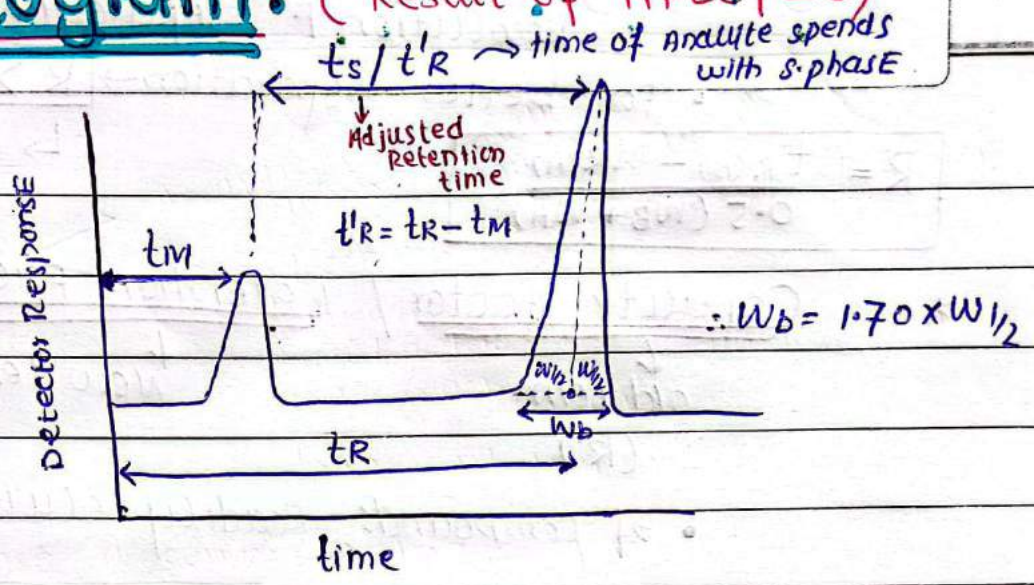 ogram:
ts / t'R → time of Analyte spends
with s.phasE
Adjusted
Retention
time
t'R = tR - tM
tM
Detector ResponsE
∴ Wb = 1.70 x W1/2
W1/2 W1/2
Wb
tR
time
R =
0.5